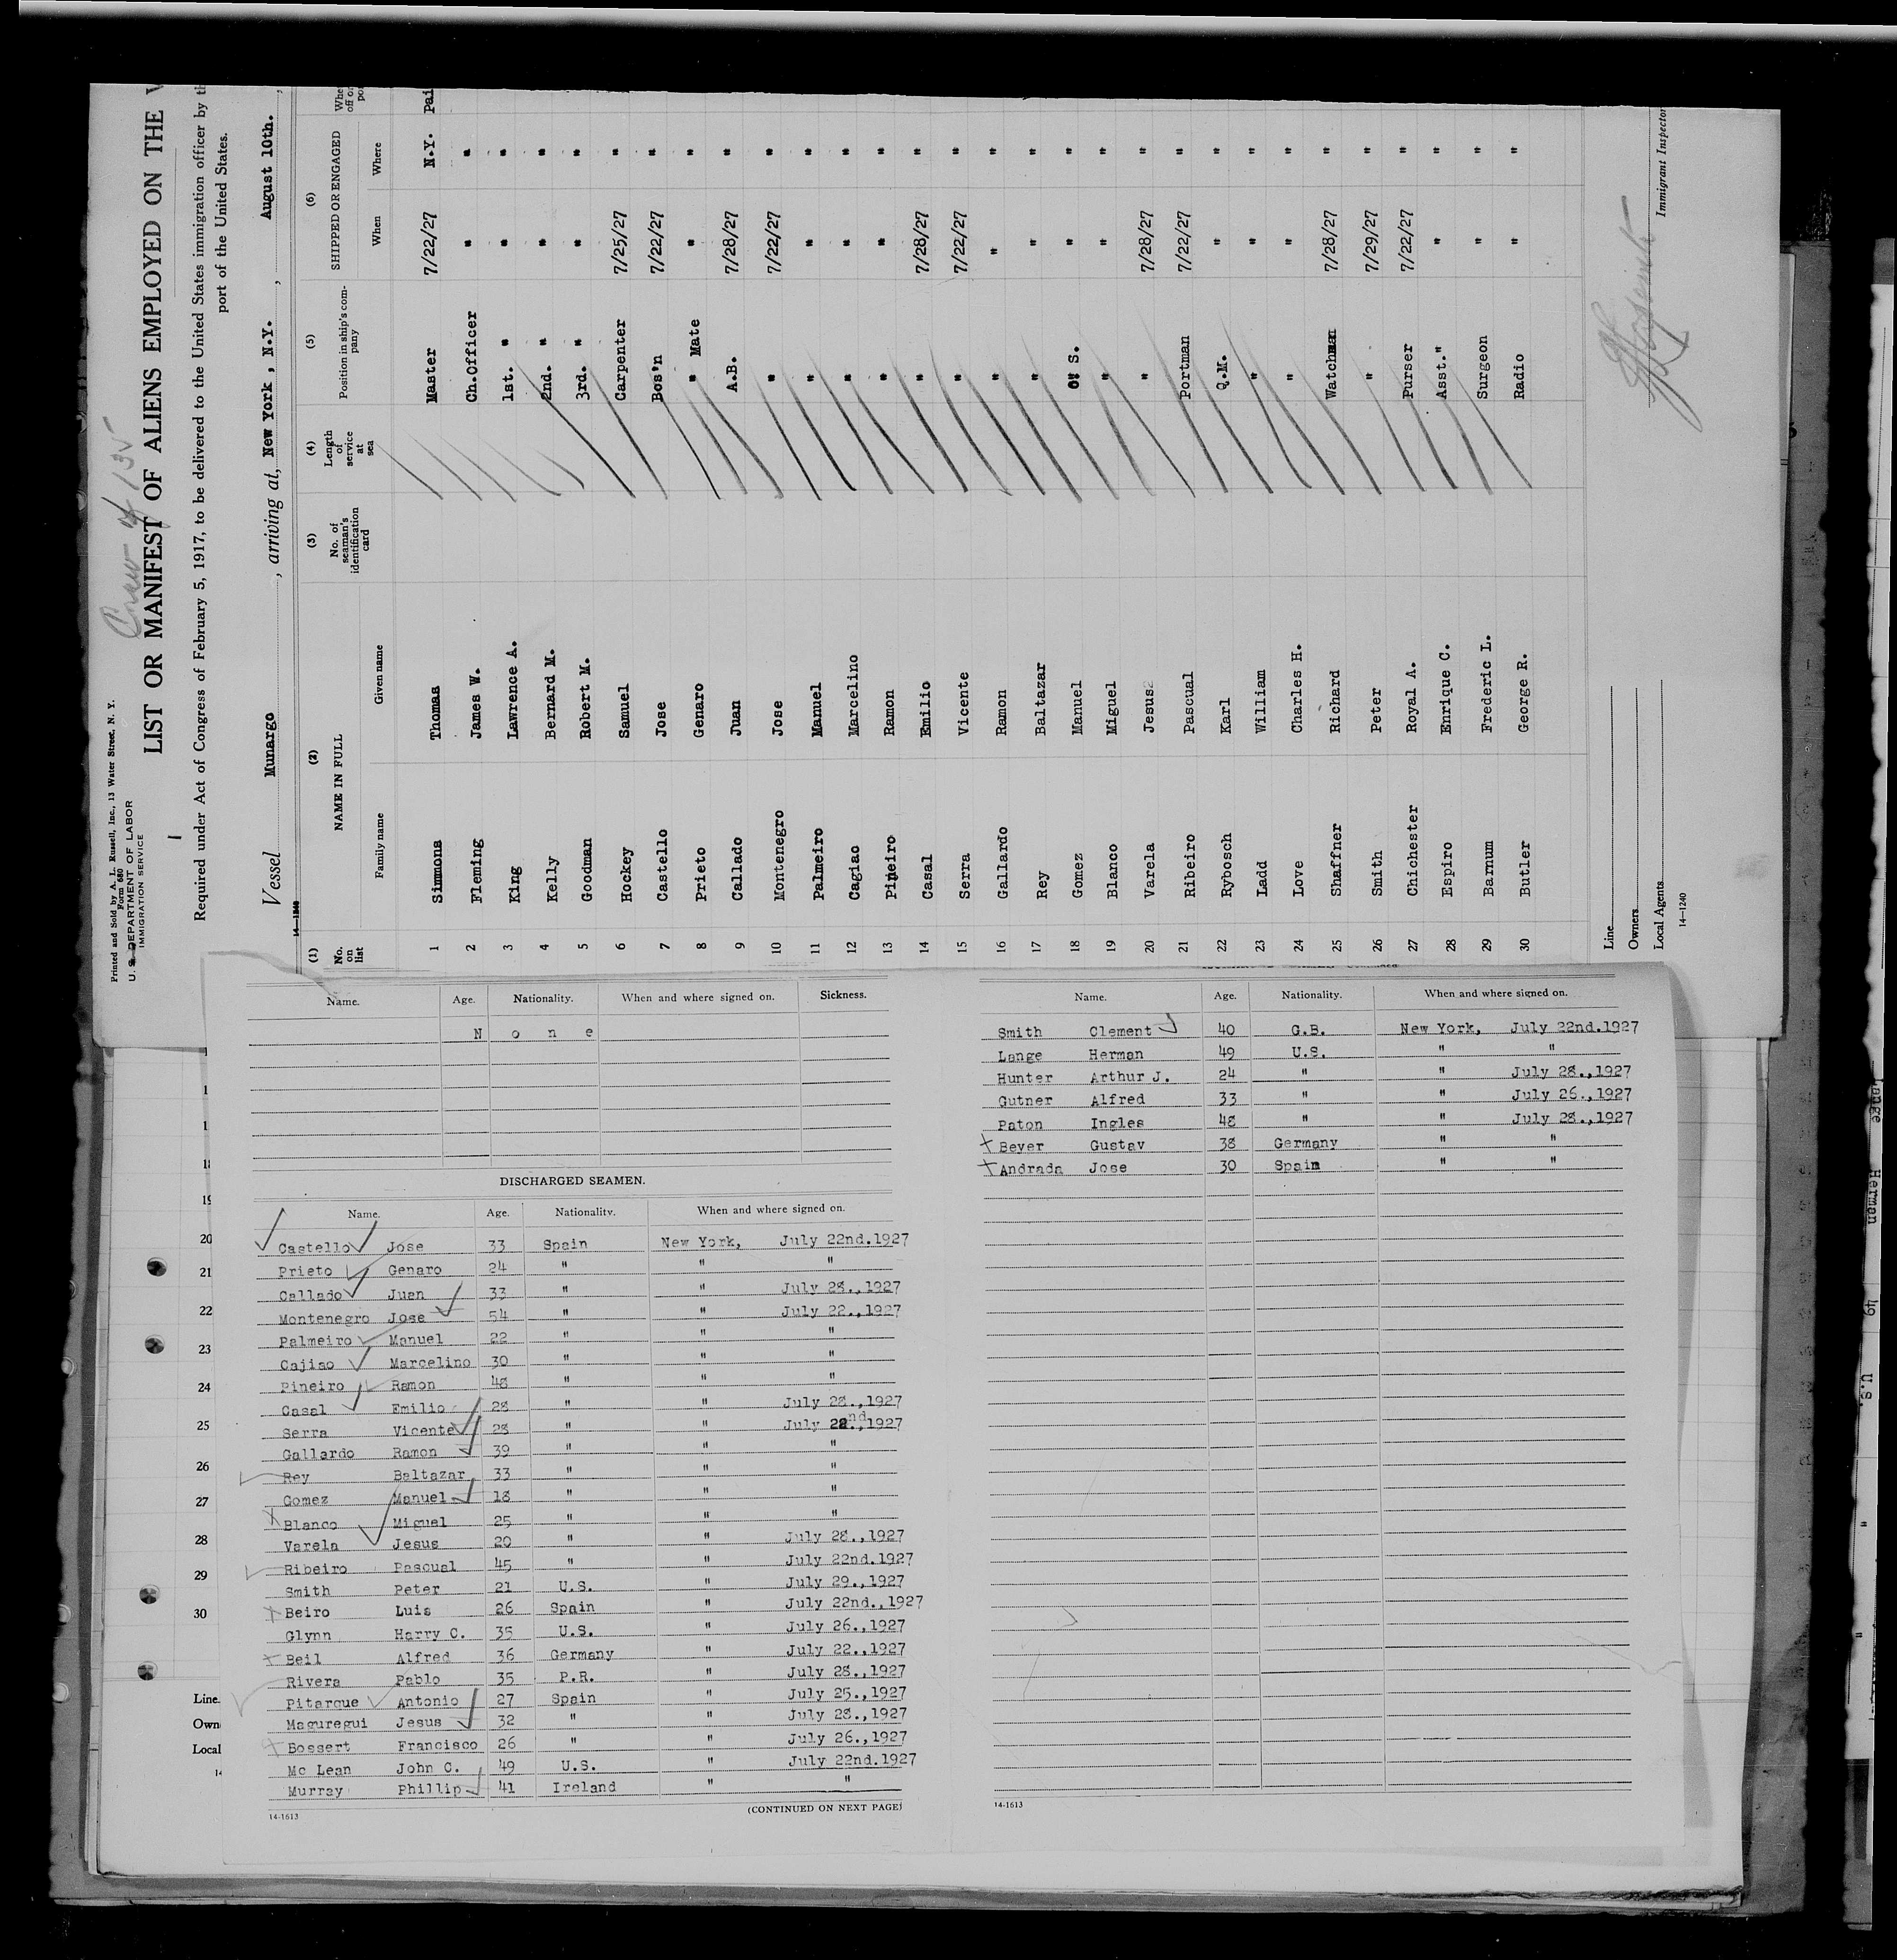 Printed and Sold by A. L. Russell, Inc., 13 Water Street, N. Y.
Form 680
U. S. DEPARTMENT OF LABOR
IMMIGRATION SERVICE
Crew of 135
LIST OR MANIFEST OF ALIENS EMPLOYED ON THE
1
Required under Act of Congress of February 5, 1917, to be delivered to the United States immigration officer by
port of the United States.
Vessel Munargo, arriving at, New York, N.Y., August 10th.,
14—1240
(1) (2) (3) (4) (5) (6)
No. on list NAME IN FULL No. of seaman's identification card Length of service at sea Position in ship's company SHIPPED OR ENGAGED
Family name Given name When Where
1 Simmons Thomas Master 7/22/27 N.Y. Pai
2 Fleming James W. Ch.Officer " "
3 King Lawrence A. 1st. " " "
4 Kelly Bernard M. 2nd. " " "
5 Goodman Robert M. 3rd. " " "
6 Hockey Samuel Carpenter 7/25/27 "
7 Castello Jose Bos'n 7/22/27 "
8 Prieto Genaro " Mate " "
9 Callado Juan A.B. 7/28/27 "
10 Montenegro Jose " 7/22/27 "
11 Palmeiro Manuel " " "
12 Cagiao Marcelino " " "
13 Pineiro Ramon " " "
14 Casal Emilio " 7/28/27 "
15 Serra Vicente " 7/22/27 "
16 Gallardo Ramon " " "
17 Rey Baltazar " " "
18 Gomez Manuel O. S. " "
19 Blanco Miguel " " "
20 Varela Jesus " 7/28/27 "
21 Ribeiro Pascual Portman 7/22/27 "
22 Rybosch Karl Q.M. " "
23 Ladd William " " "
24 Love Charles H. " " "
25 Shaffner Richard Watchman 7/28/27 "
26 Smith Peter " 7/29/27 "
27 Chichester Royal A. Purser 7/22/27 "
28 Espiro Enrique C. Asst." " "
29 Barnum Frederic L. Surgeon " "
30 Butler George R. Radio " "
Line
Owners
Local Agents
14—1240
Immigrant Inspector
Name. Age. Nationality. When and where signed on. Sickness.
N o n e
DISCHARGED SEAMEN.
Name. Age. Nationality. When and where signed on.
Castello Jose 33 Spain New York, July 22nd.1927
Prieto Genaro 24 " " "
Callado Juan 33 " " July 28.,1927
Montenegro Jose 54 " " July 22.,1927
Palmeiro Manuel 22 " " "
Cajiao Marcelino 30 " " "
Pineiro Ramon 48 " " "
Casal Emilio 28 " " July 28.,1927
Serra Vicente 28 " " July 22nd.,1927
Gallardo Ramon 39 " " "
Rey Baltazar 33 " " "
Gomez Manuel 18 " " "
Blanco Miguel 25 " " "
Varela Jesus 20 " " July 28.,1927
Ribeiro Pascual 45 " " July 22nd.1927
Smith Peter 21 U.S. " July 29.,1927
Beiro Luis 26 Spain " July 22nd.,1927
Glynn Harry C. 35 U.S. " July 26.,1927
Beil Alfred 36 Germany " July 22.,1927
Rivera Pablo 35 P.R. " July 28.,1927
Pitarque Antonio 27 Spain " July 25.,1927
Maguregui Jesus 32 " " July 28.,1927
Bossert Francisco 26 " " July 26.,1927
Mc Lean John C. 49 U.S. " July 22nd.1927
Murray Phillip 41 Ireland " "
14-1613
(CONTINUED ON NEXT PAGE)
Name. Age. Nationality. When and where signed on.
Smith Clement 40 G.B. New York, July 22nd.1927
Lange Herman 49 U.S. " "
Hunter Arthur J. 24 " " July 28.,1927
Gutner Alfred 33 " " July 26.,1927
Paton Ingles 48 " " July 28.,1927
Beyer Gustav 38 Germany " "
Andrada Jose 30 Spain " "
14-1613
19
20
21
22
23
24
25
26
27
28
29
30
Line
Own
Local
14
Lange Herman 49 U.S. " "